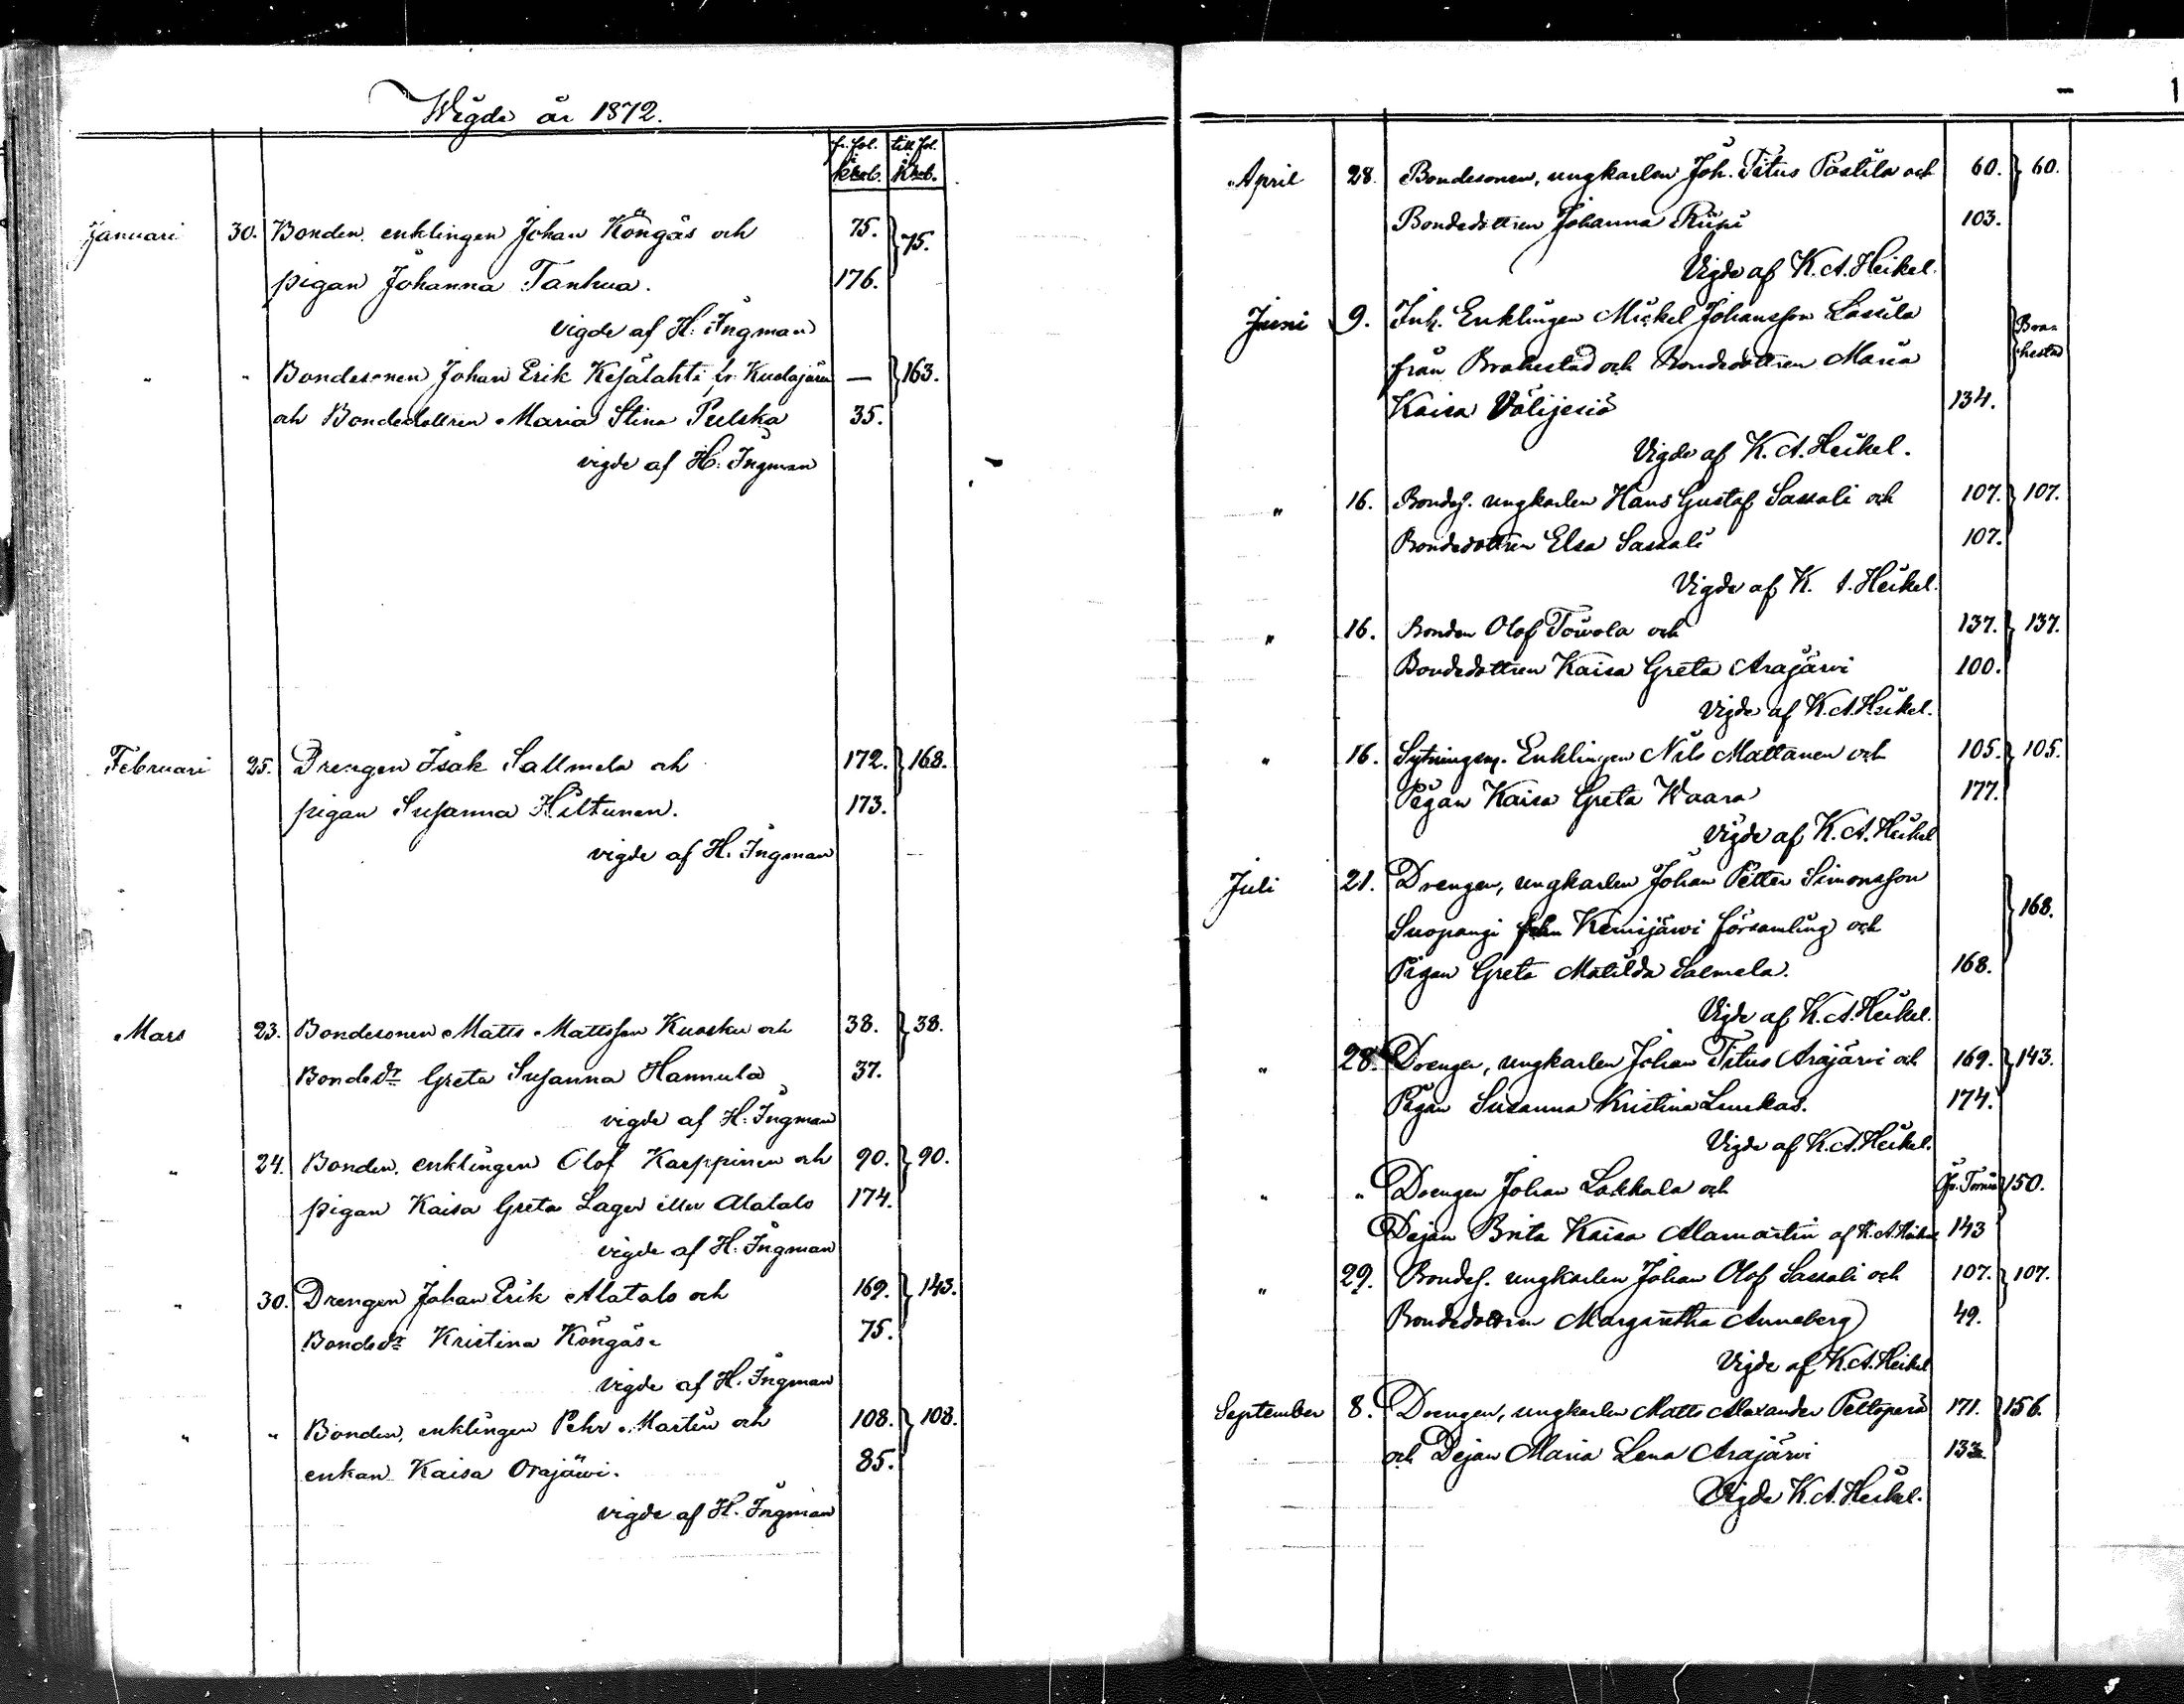 Wigde år 1872.
fr. fol. i Kb. till fol. i Kb.
Januari 30. Bonden, enklingen Johan Köngäs och 75. } 75.
pigan Johanna Tanhua. 176.
vigde af H. Ingman
" " Bondesonen Johan Erik Kesälahti fr. Kuolajärvi — } 163.
och Bondedottren Maria Stina Pulska 35.
vigde af H. Ingman
Februari 25. Drengen Isak Sallmela och 172. } 168.
pigan Susanna Hiltunen. 173.
vigde af H. Ingman
Mars 23. Bondesonen Matts Mattsson Kuosku och 38. } 38.
Bondedr Greta Susanna Hannula 37.
vigde af H. Ingman
" 24. Bonden, enklingen Olof Karppinen och 90. } 90.
pigan Kaisa Greta Lager eller Alatalo 174.
vigde af H. Ingman
" 30. Drengen Johan Erik Alatalo och 169. } 143.
Bondedr Kristina Köngäs 75.
vigde af H. Ingman
" " Bonden, enklingen Pehr Martin och 108. } 108.
enkan Kaisa Orajärvi. 85.
vigde af H. Ingman
April 28. Bondesonen, ungkarlen Joh. Titus Postila och 60. } 60.
Bondedottren Johanna Riipi 103.
Vigde af K. A. Heikel.
Juni 9. Inh. Enklingen Mickel Johansson Lassila } Bra-
från Brahestad och Bondedottren Maria hestad
Kaisa Välijesiö 134.
Vigde af K. A. Heikel.
" 16. Bondes. ungkarlen Hans Gustaf Sassali och 107. } 107.
Bondedottren Elsa Sassali 107.
Vigde af K. A. Heikel.
" 16. Bonden Olof Towola och 137. } 137.
Bondedottren Kaisa Greta Arajärvi 100.
Vigde af K. A. Heikel.
" 16. Sytningsm. Enklingen Nils Mattanen och 105. } 105.
Pigan Kaisa Greta Waara 177.
Vigde af K. A. Heikel
Juli 21. Drengen, ungkarlen Johan Petter Simonsson
Suopangi från Kemijärvi församling och } 168.
Pigan Greta Matilda Salmela. 168.
Vigde af K. A. Heikel.
" 28. Drengen, ungkarlen Johan Titus Arajärvi och 169. } 143.
Pigan Susanna Kristina Luukas. 174.
Vigde af K. A. Heikel.
" " Drengen Johan Lakkala och Öf. Torneå } 150.
Dejan Brita Kaisa Alamartin af K. A. Heikel 143
" 29. Bondes. ungkarlen Johan Olof Sassali och 107. } 107.
Bondedottren Margaretha Anneberg 49.
Vigde af K. A. Heikel
September 8. Drengen, ungkarlen Matts Alexander Peltoperä 171. } 156.
och Dejan Maria Lena Arajärvi 133
Vigde K. A. Heikel.